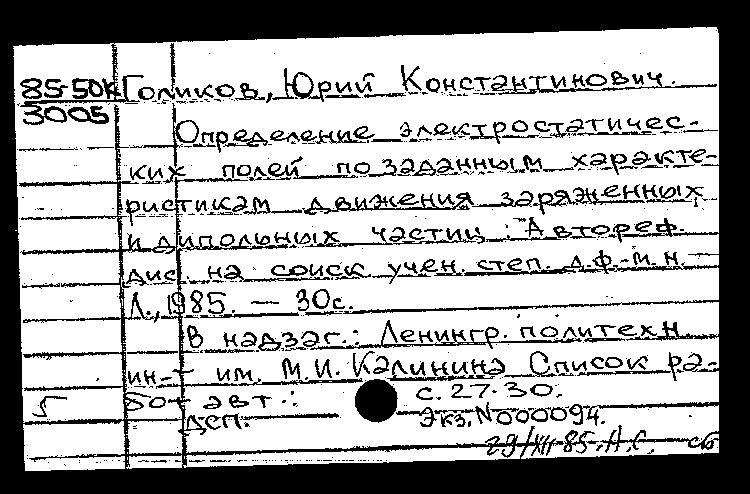 85-50к Голиков, Юрий Константинович.
3005
Определение электростатичес-
ких полей по заданным характе-
ристикам движения заряженных
и дипольных частиц : Автореф.
дис. на соиск учен. степ. д.ф.-м.н. —
Л., 1985. — 30с.
В надзаг.: Ленингр. политехн.
ин-т им. М.И. Калинина Список ра-
5 бот авт.: с. 27-30.
ДСП. Экз. N000094.
29/XII-85. А.С.